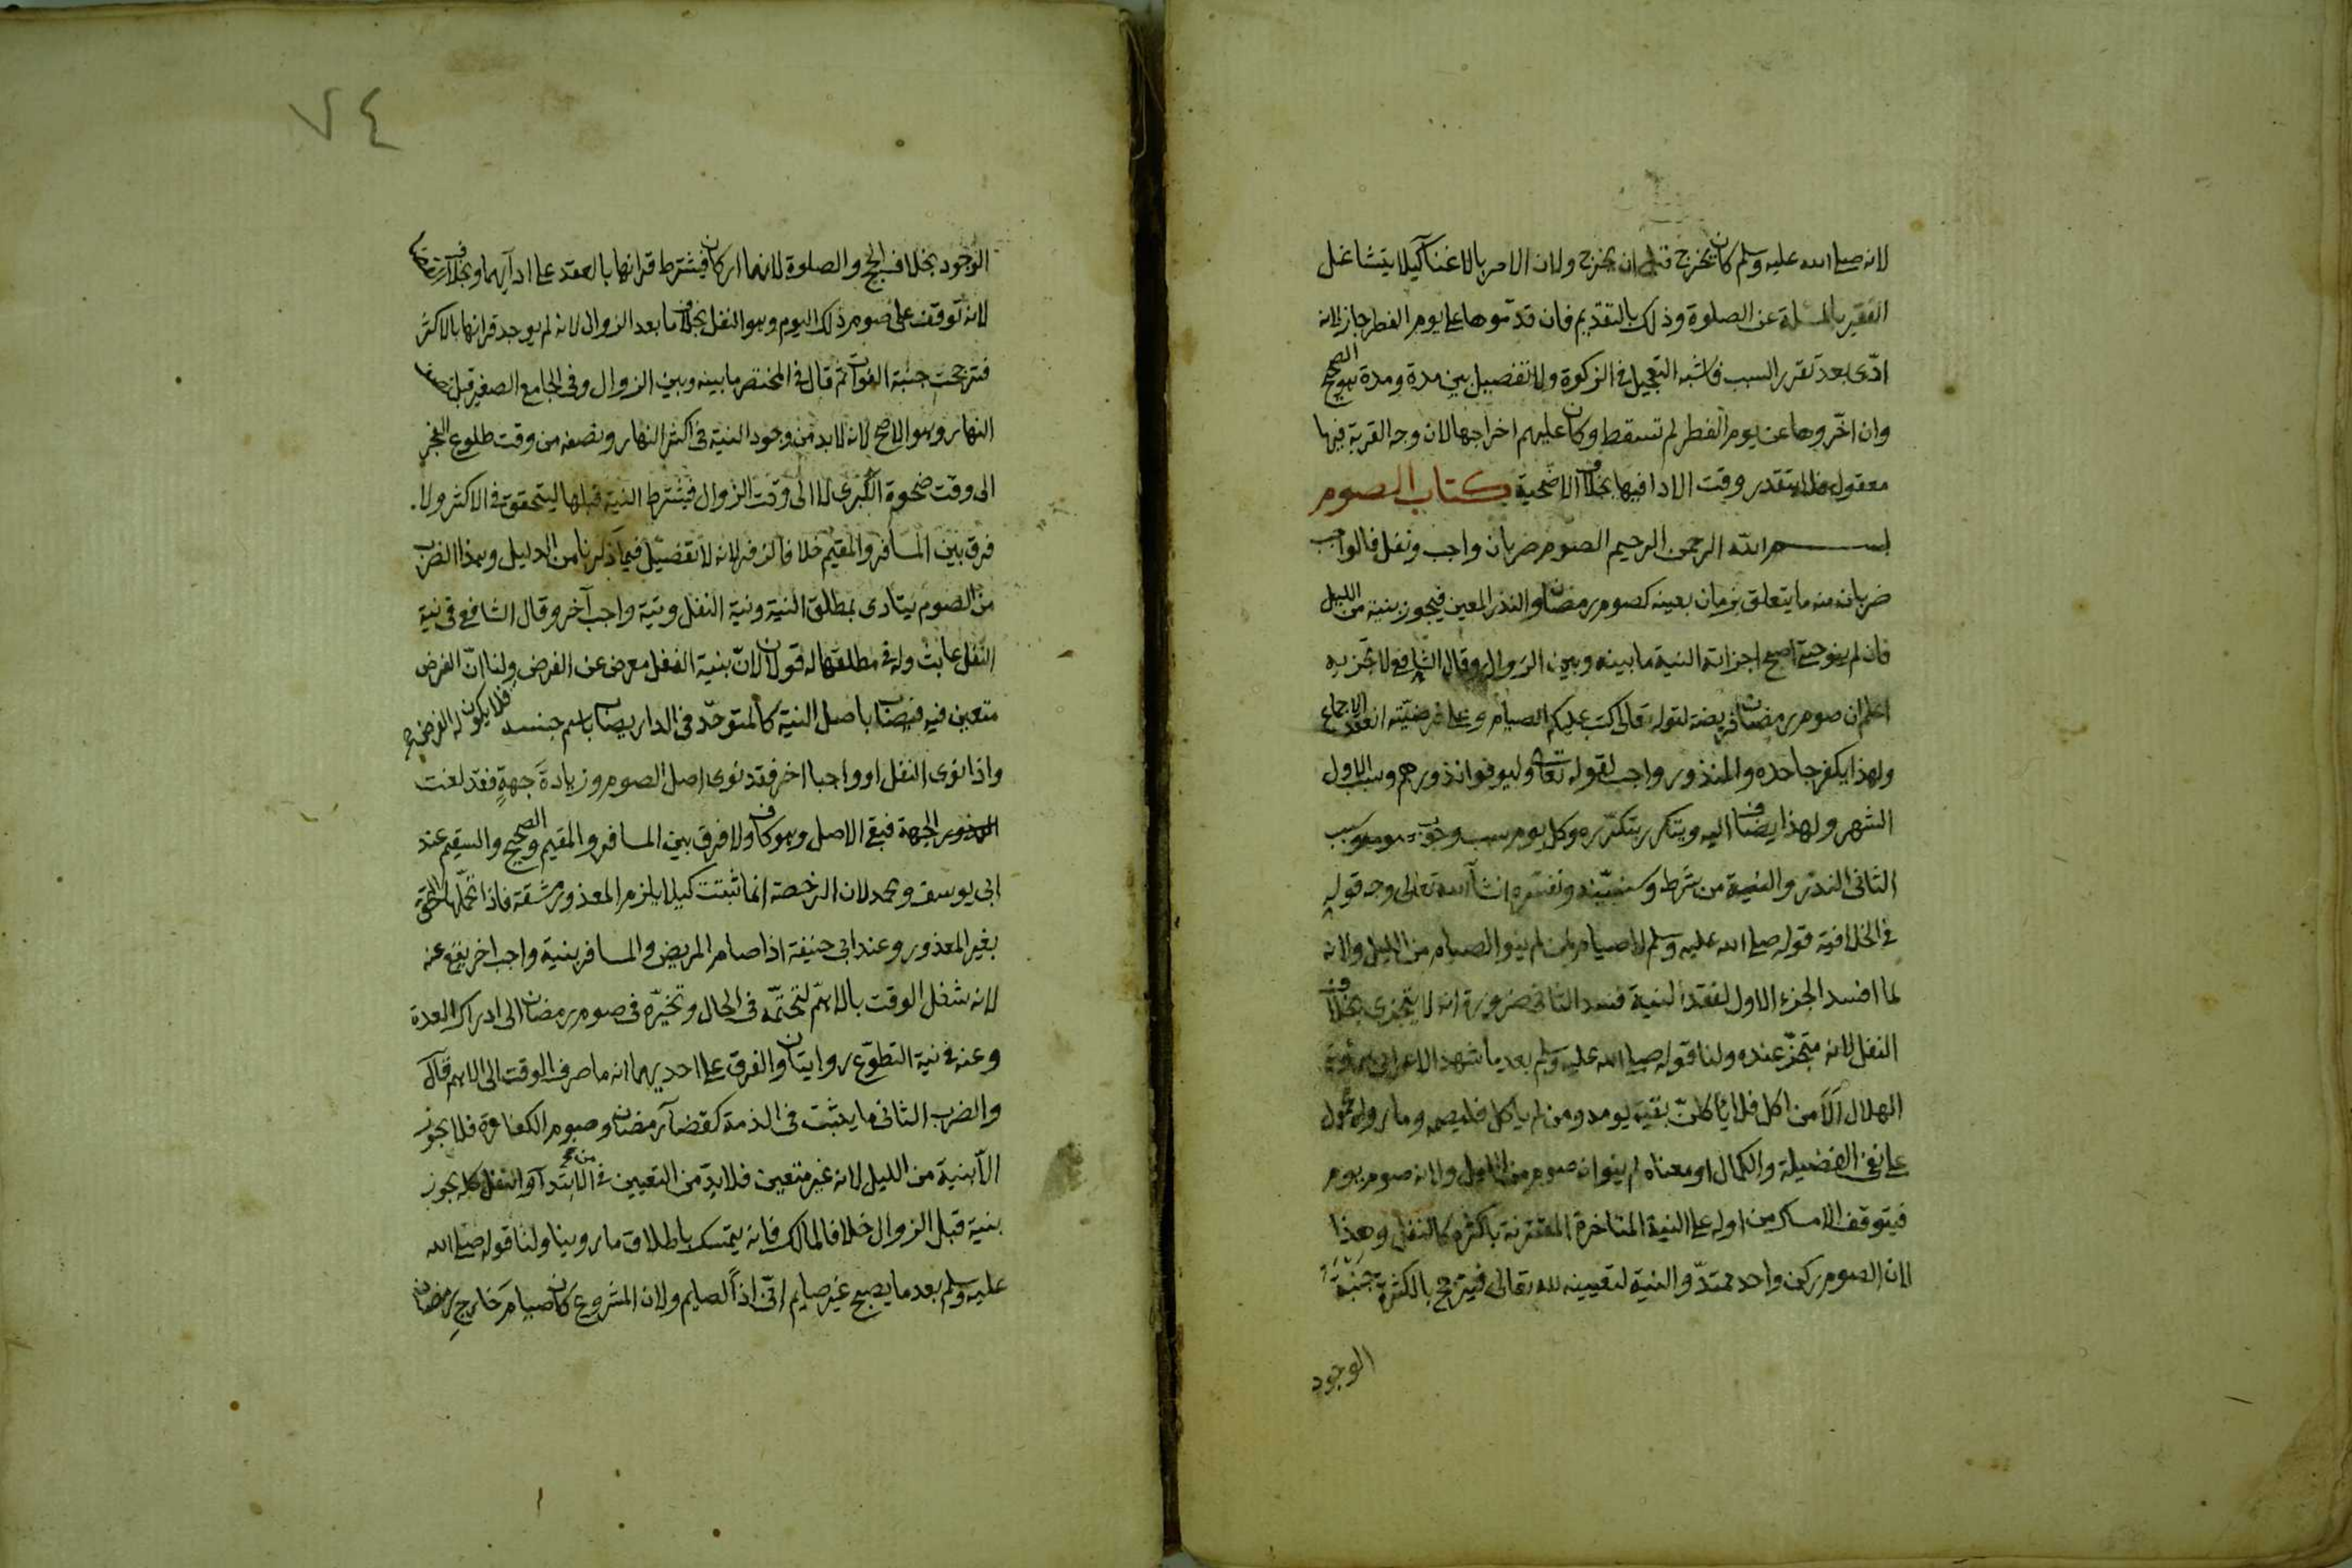 لانه صلى الله عليه وسلم كان يخرج قبل ان يخرج ولان الامر بالاغنآ كيلا يتشاغل
الفقير بالمسلة عن الصلوة وذلك بالتقديم فان قدموها على يوم الفطر جاز لانه
ادّى بعد تقرر السبب فاشبه التعجيل فى الزكوة ولا تفصيل بين مدة ومدة هو الصحيح
وان اخّروها عن يوم الفطر لم تسقط وكان عليهم اخراجها لان وجه القربة فيها
معقول فلا يتقدر وقت الادا فيها بخلاف الاضحية كتاب الصوم
بسم الله الرحمن الرحيم الصوم ضربان واجب ونفل فالواجب
ضربان منه ما يتعلق بزمان بعينه كصوم رمضان والنذر المعين فيجوز بنية من الليل
فان لم ينو حتى اصبح اجزاته النية ما بينه وبين الزوال وقال الشافعى لا تجزيه
اعلم ان صوم رمضان فريضة لقوله تعالى كتب عليكم الصيام وعلى فرضيّته انعقد الاجماع
ولهذا يكفر جاحده والمنذور واجب لقوله تعالى وليوفوا نذورهم وسبب الاول
الشهر ولهذا يضاف اليه ويتكرر بتكرّره وكل يوم سبب وجوب صومه وسبب
الثانى النذر والنية من شرطه وسنبيّنه ونفسّره ان شآ الله تعالى وجه قوله
فى الخلافية قوله صلى الله عليه وسلم لا صيام لمن لم ينو الصيام من الليل ولانه
لما افسد الجزء الاول لفقد النية فسد الثانى ضرورة انه لا يتجزى بخلاف
النفل لانه متجزّ عنده ولنا قوله صلى الله عليه وسلم بعد ما شهد الاعرابى برؤية
الهلال اَلَا من اكل فلا ياكلنّ بقية يومه ومن لم ياكل فليصم وما رواه محمول
على نفى الفضيلة والكمال او معناه لم ينو انه صوم من الليل ولانه صوم يوم
فيتوقف الامساك من اوله على النية المتاخرة المقترنة باكثره كالنفل وهذا
لان الصوم ركن واحد ممتدّ والنية لتعيينه لله تعالى فيترجح بالكثرة جنبة
الوجود
٧٤
الوجود بخلاف الحج والصلوة لانهما اركان فيشترط قرانها بالعقد على ادآيهما وبخلاف
لانه توقف على صوم ذلك اليوم وهو النفل بخلاف ما بعد الزوال لانه لم يوجد قرانها بالاكثر
فترجحت جنبة الفوات ثم قال فى المختصر ما بينه وبين الزوال وفى الجامع الصغير قبل نصف
النهار وهو الاصح لانه لا بد من وجود النية فى اكثر النهار ونصفه من وقت طلوع الفجر
الى وقت ضحوة الكبرى لا الى وقت الزوال فيشترط النية قبلها ليتحقق فى الاكثر ولا
فرق بين المسافر والمقيم خلافا لزفر لانه لا تفضيل فيما ذكرنا من الدليل وهذا الضرب
من الصوم يتادى بمطلق النية ونية النفل ونية واجب آخر وقال الشافعى فى نية
النفل عابث وله فى مطلقها له قولان لانّ بنية النفل معرض عن الفرض ولنا انّ الفرض
متعين فيه فيصاب باصل النية كالمتوحّد فى الدار يصاب باسم جنسه فلا يكون له الفرض
واذا نوى النفل او واجبا اخر فقد نوى اصل الصوم وزيادةَ جهةٍ فقد لغت
الجهة فبقى الاصل وهو كاف ولا فرق بين المسافر والمقيم والصحيح والسقيم عند
ابى يوسف ومحمد لان الرخصة انما ثبتت كيلا يلزم المعذور مشقة فاذا تحمّلها التحق
بغير المعذور وعند ابى حنيفة اذا صام المريض والمسافر بنية واجب اخر يقع عنه
لانه شغل الوقت بالاهمّ لتحتّمه فى الحال وتخيّره فى صوم رمضان الى ادراك العدة
وعنه فى نية التطوّع روايتان والفرق على احديهما انه ما صرف الوقت الى الاهم قال
والضرب الثانى ما يثبت فى الذمة كقضآ رمضان وصوم الكفارة فلا يجوز
الّا بنية من الليل لانه غير متعين فلا بدّ من التعيين فى الابتدآ والنفل كله يجوز
بنية قبل الزوال خلافا لمالك فانه يتمسك باطلاق ما روينا ولنا قوله صلى الله
عليه وسلم بعد ما يصبح غير صايم انّى اذاً لصايم ولان المشروع كان صيامَ خارجِ رمضان